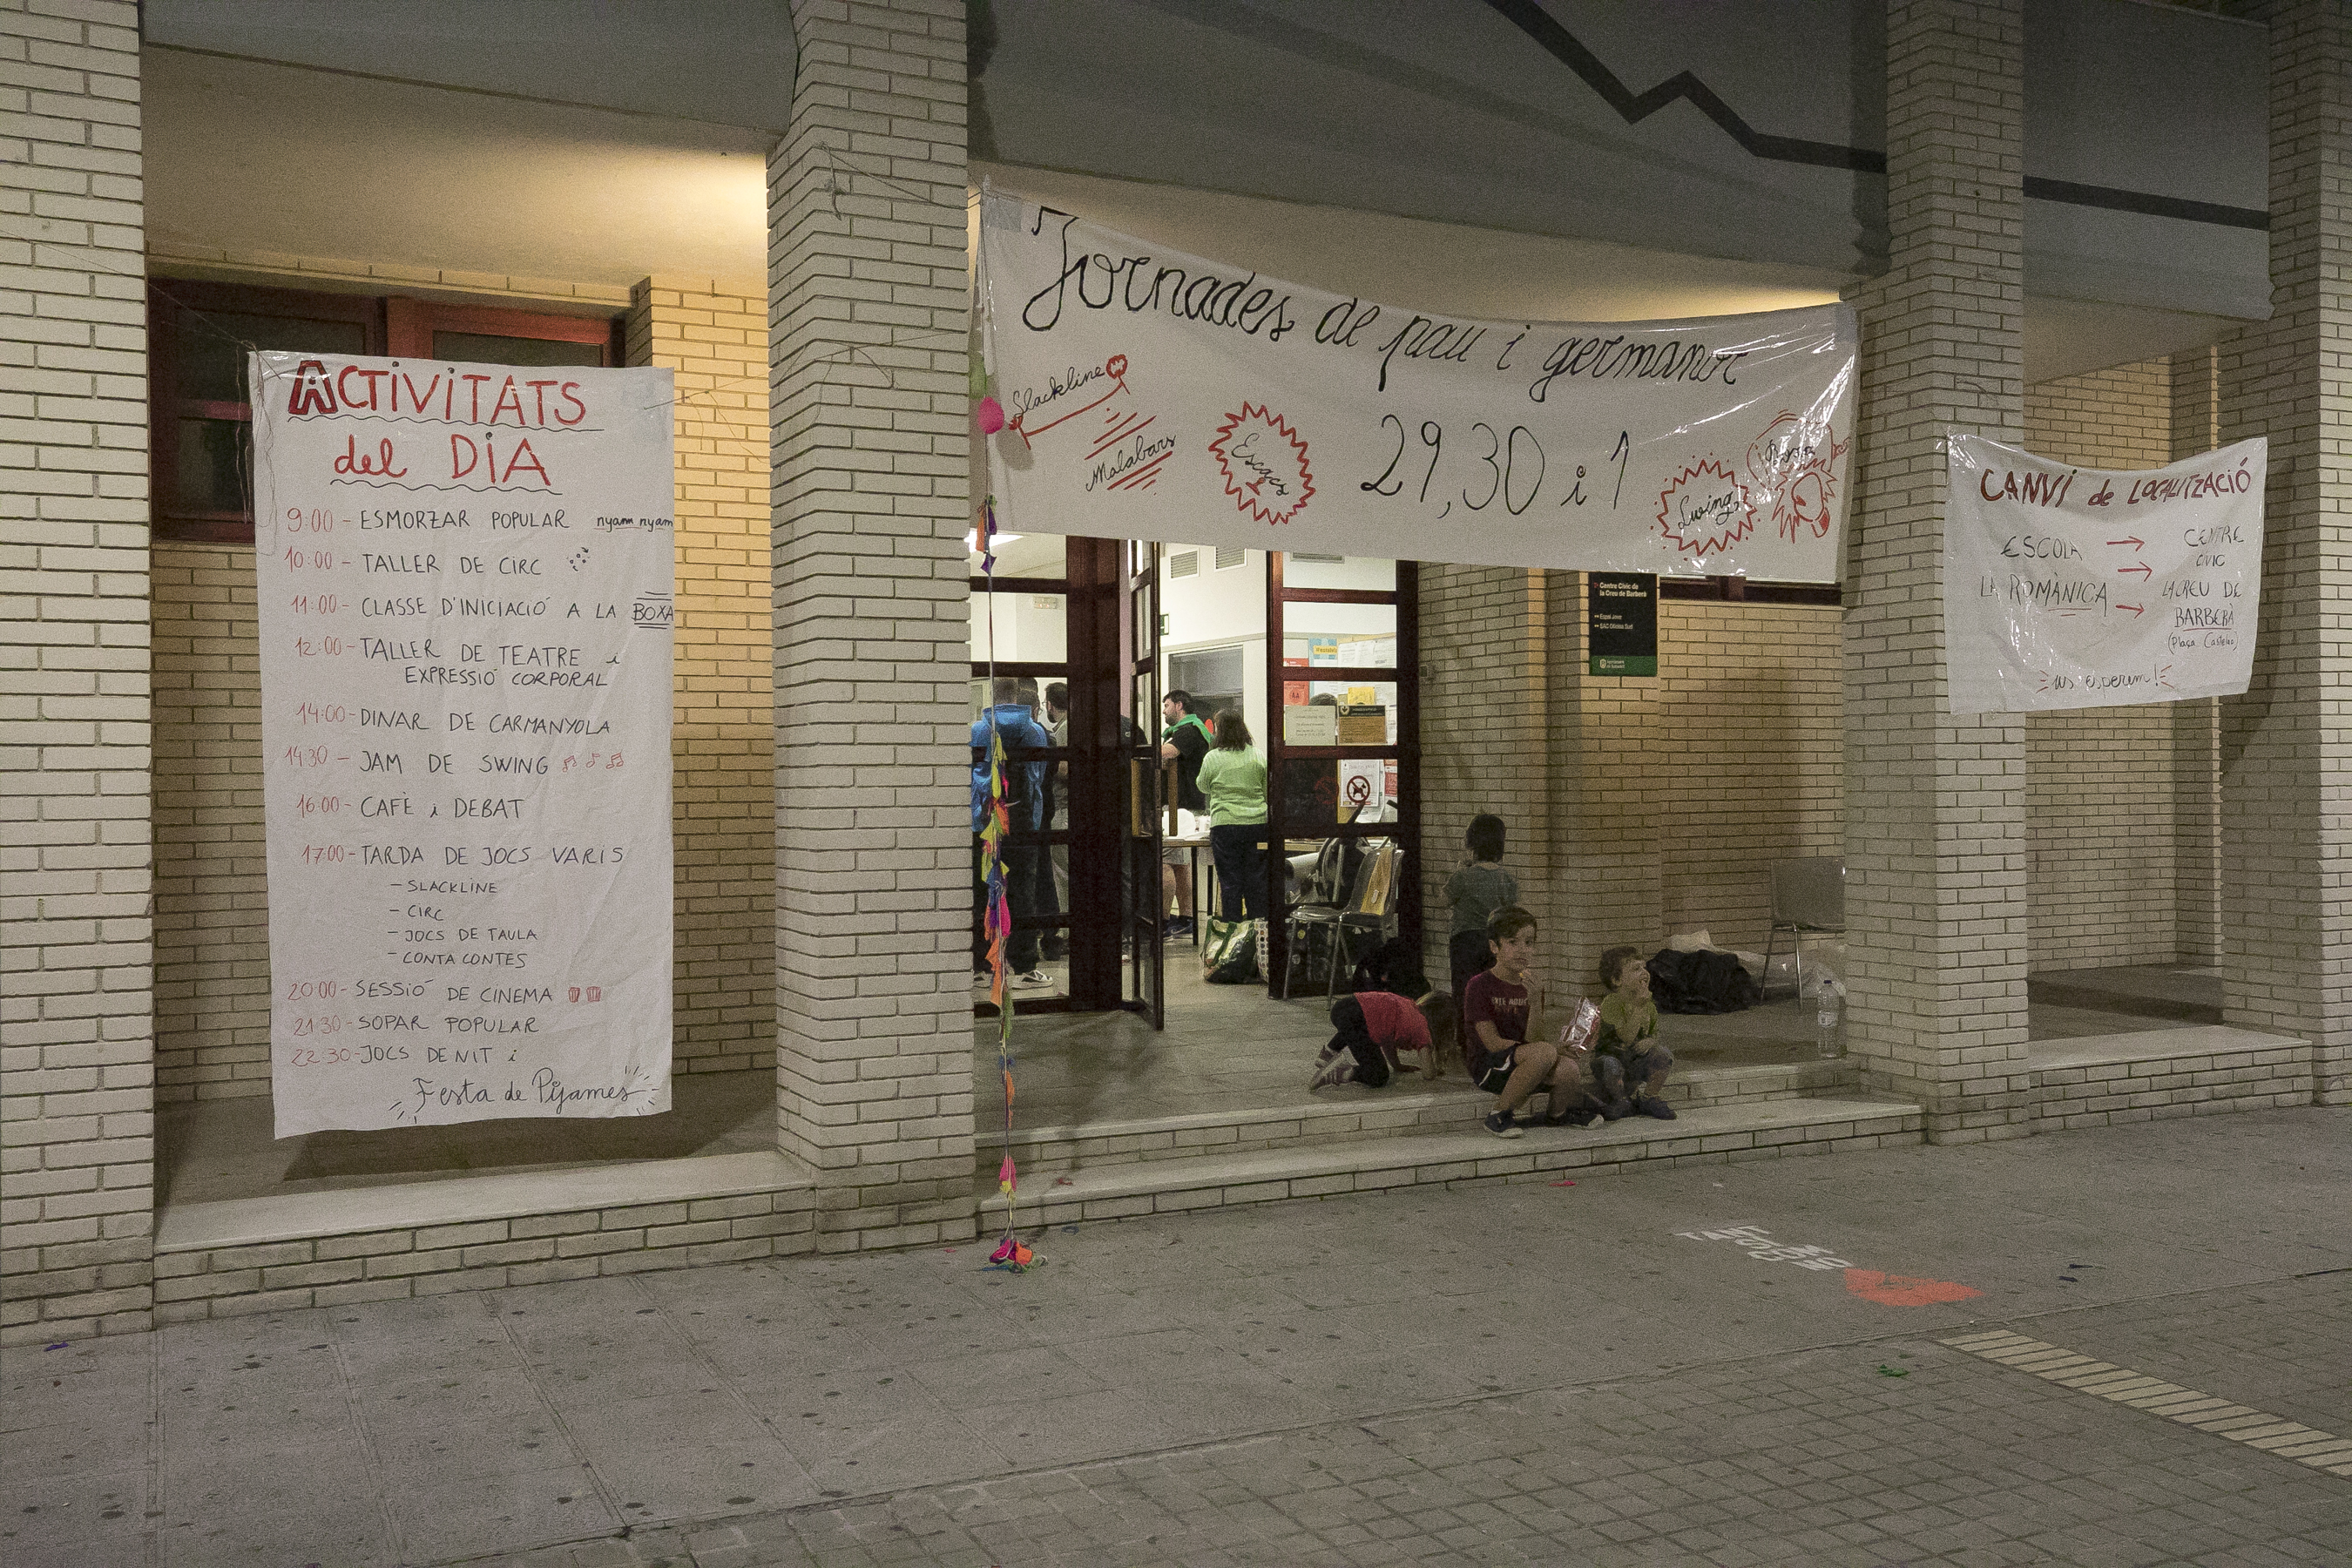 ACTIVITATS
del DIA
9:00 - ESMORZAR POPULAR nyam nyam
10:00 - TALLER DE CIRC
11:00 - CLASSE D'INICIACIÓ A LA BOXA
12:00 - TALLER DE TEATRE i
EXPRESSIÓ CORPORAL
14:00 - DINAR DE CARMANYOLA
14:30 - JAM DE SWING
16:00 - CAFÈ i DEBAT
17:00 - TARDA DE JOCS VARIS
- SLACKLINE
- CIRC
- JOCS DE TAULA
- CONTA CONTES
20:00 - SESSIÓ DE CINEMA
21:30 - SOPAR POPULAR
22:30 - JOCS DE NIT i
Festa de Pijames
Jornades de pau i germanor
Slackline
Malabars
Escacs
29, 30 i 1
Swing
Boxa
Centre Cívic de
la Creu de Barberà
Espai Jove
CANVI de LOCALITZACIÓ
ESCOLA → CENTRE
→ CÍVIC
LA ROMÀNICA → LA CREU DE
BARBERÀ
(Plaça Castelao)
us esperem!